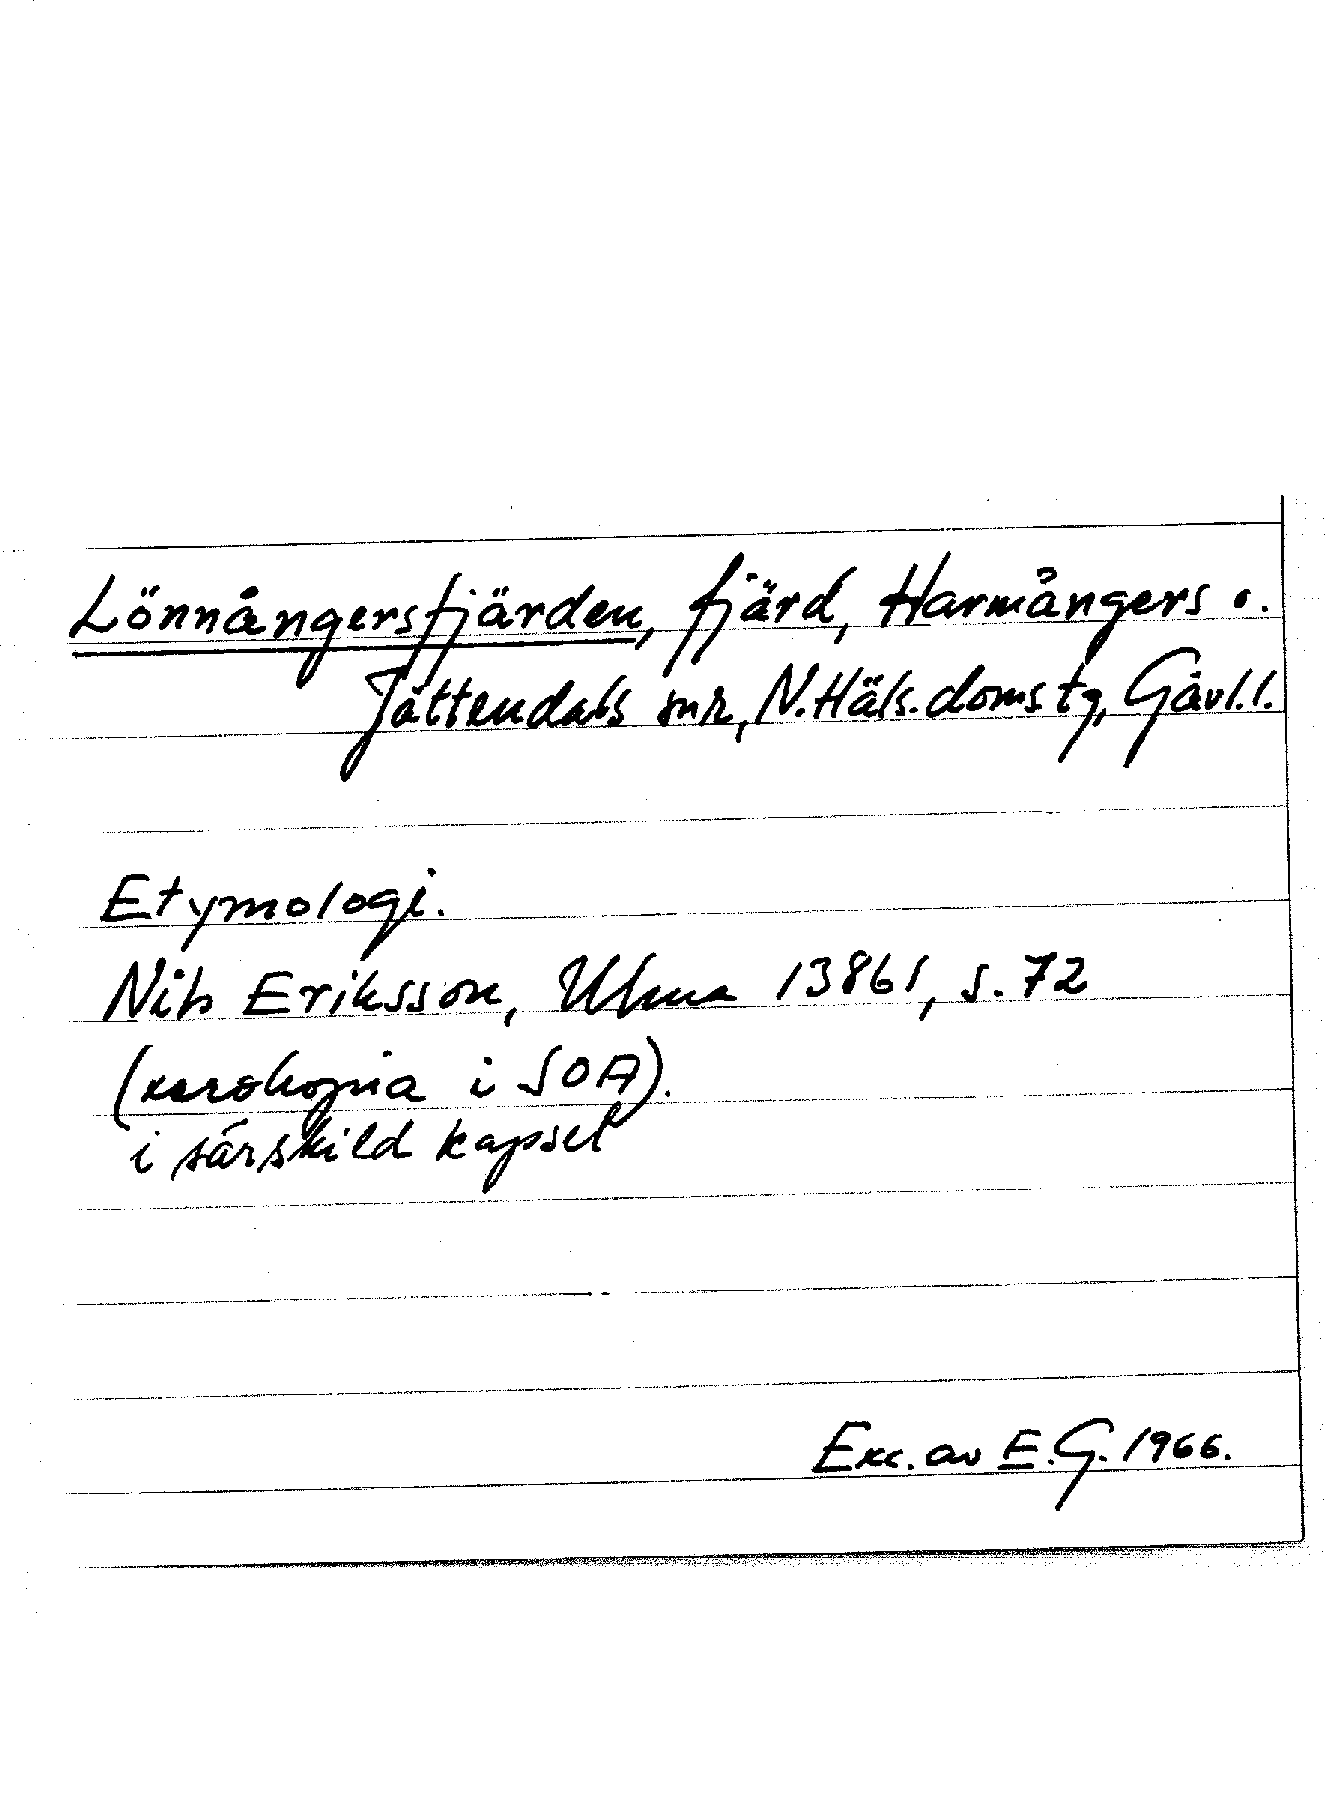 Lönnångersfjärden, fjärd, Harmångers o.
Jättendals snr, N. Häls. domstg, Gävl. l.
Etymologi.
Nils Eriksson, Ulma 13861, s. 72
(xerokopia i SOA).
i särskild kapsel
Exc. av E. G. 1966.